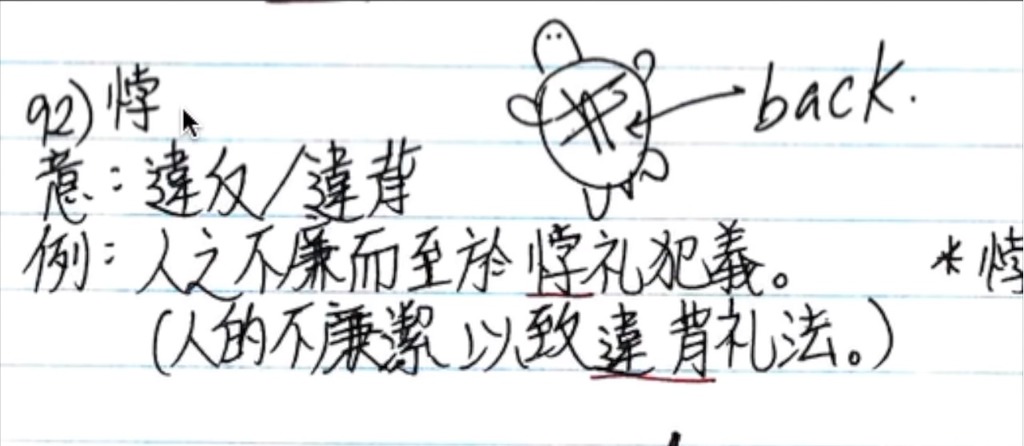 92) 悖
back.
意：違反/違背
例：人之不廉而至於悖礼犯義。 * 悖
(人的不廉潔以致違背礼法。)